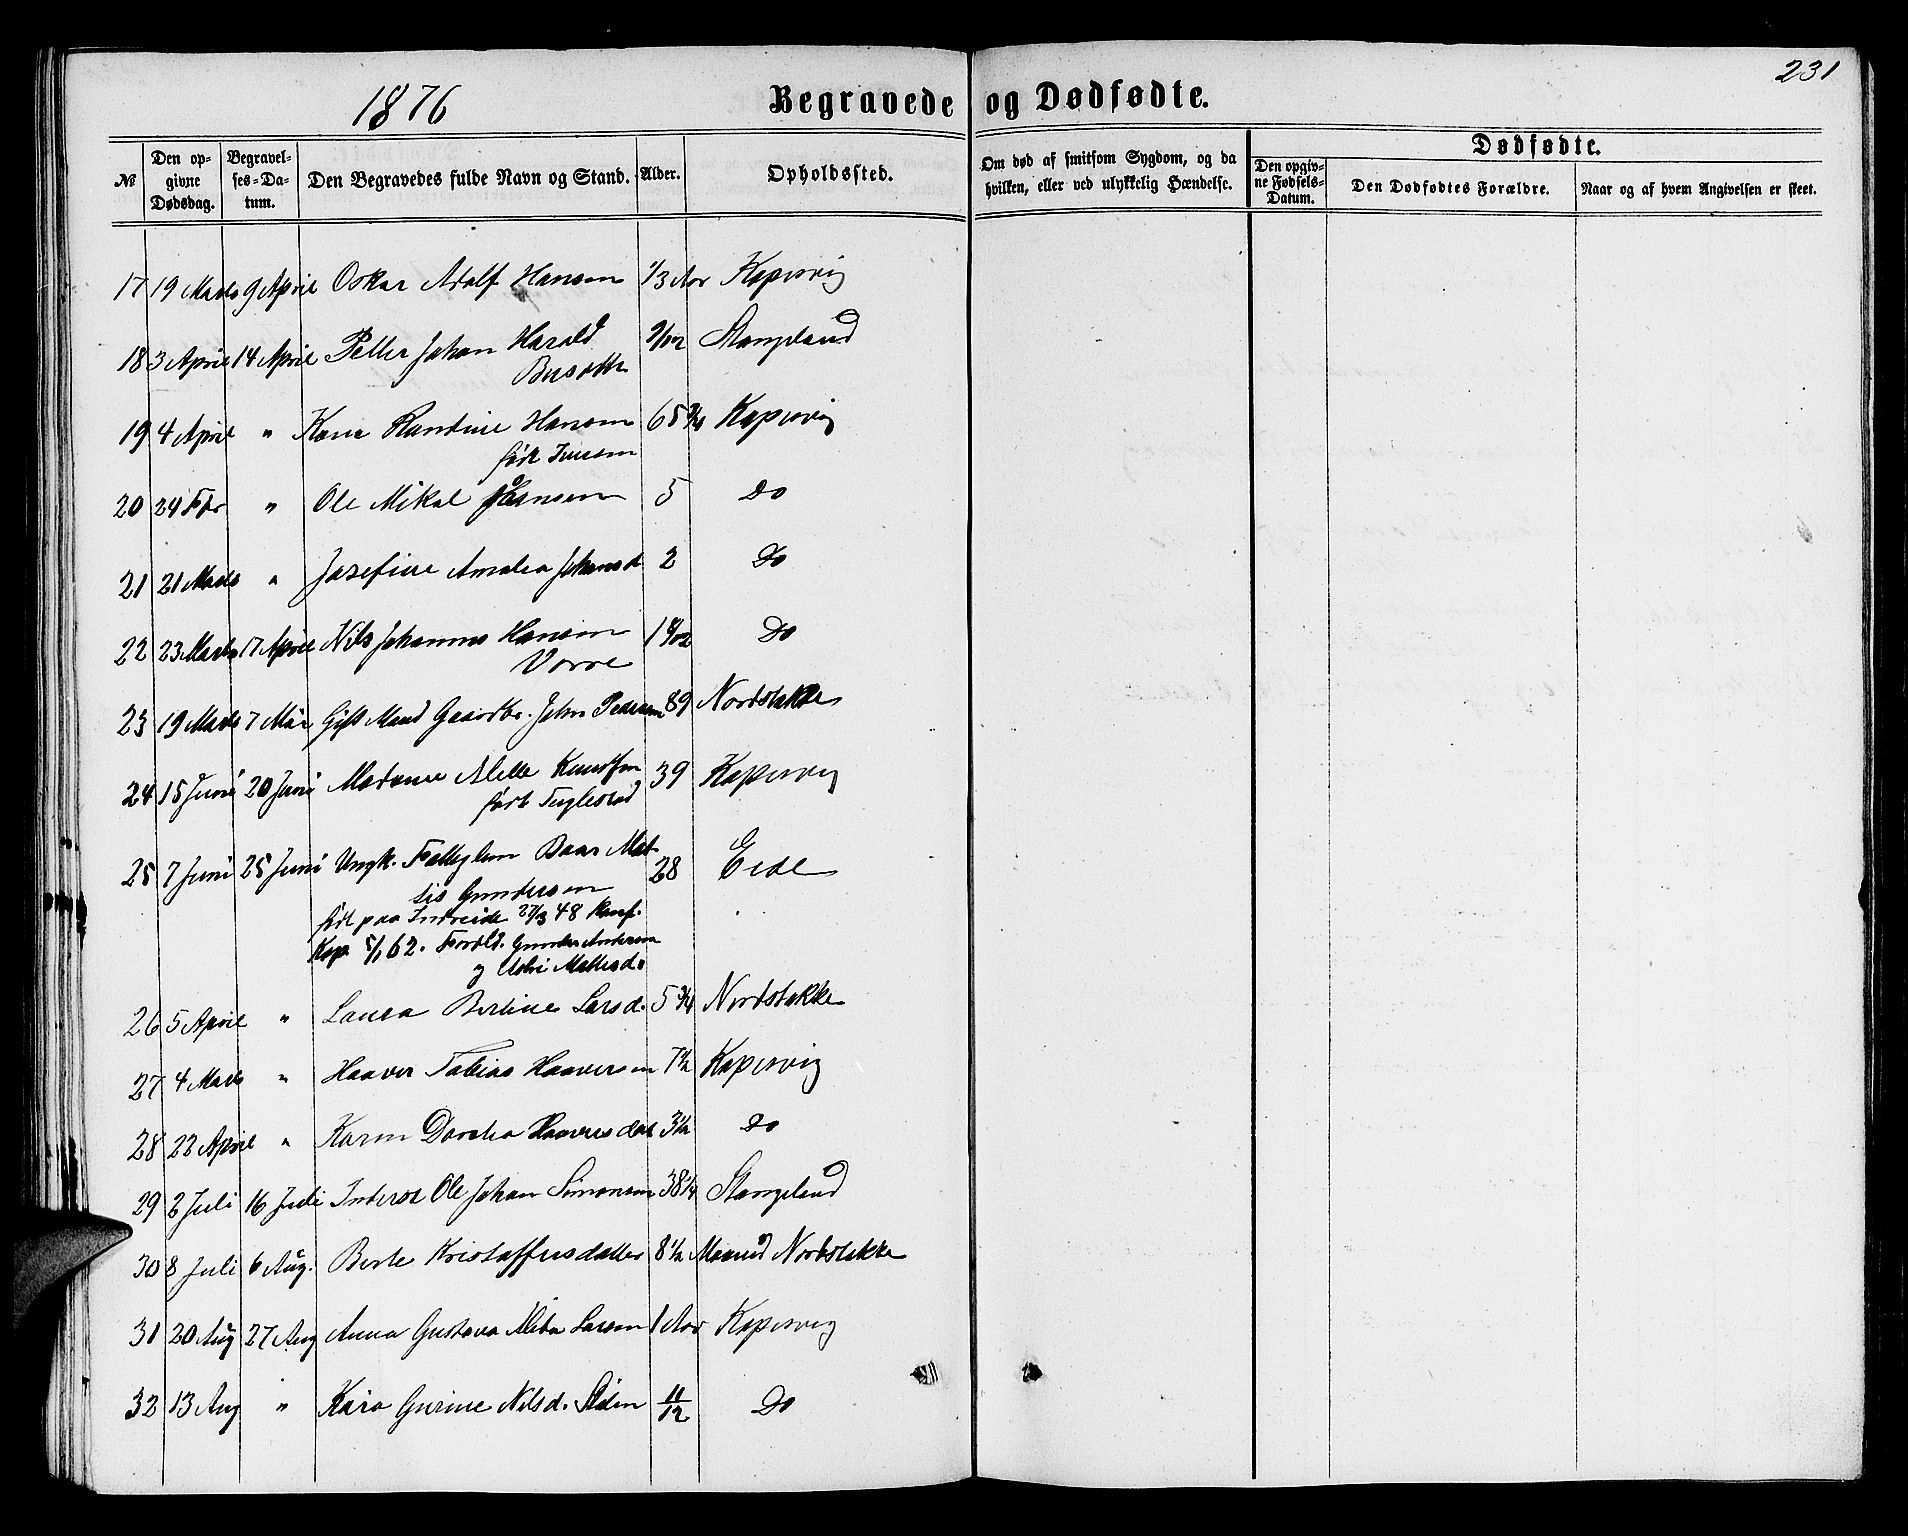 231
1876 Begravede og Dødfødte.
№ Den opgivne Dødsdag. Begravelses-Datum. Den Begravedes fulde Navn og Stand. Alder. Opholdssted. Om død af smitsom Sygdom, og da hvilken, eller ved ulykkelig Hændelse. Dødfødte. Den opgivne Fødsels-Datum. Den Dødfødtes Forældre. Naar og af hvem Angivelsen er skeet.
17 19 Marts 9 April Oskar Adolf Hansen 1/3 Aar Kopervig
18 3 April 14 April Petter Johan Harald 9/12 Stangeland
19 4 April " Randine Hansen 65 3/4 Kopervig
født Iversen
20 24 Febr " Ole Mikal Hansen 5 Do
21 21 Marts " Josefine Amalia Johansd. 2 Do
22 23 Marts 17 April Nils Johannes Hansen 1 Do
Vorre
23 19 Marts 7 Mai Gift Mand Gaardbr. John Pedersen 89 Nordstokke
24 15 Juni 20 Juni Madame Knudsen 39 Kopervig
født Fuglestad
25 7 Juni 25 Juni Ungk. Mat- 28 Eide
tis Gundersen
født paa Indreeide 27/3 48 Konf.
Kop. 5/1 62. Forældr. Gunder Andersen
og Mattisd.
26 5 April " Laura Bertine Larsd. 5 3/4 Nordstokke
27 4 Marts " Haaver Tobias Haaversen 7 1/2 Kopervig
28 22 April " Karen Dorthea Haaversdat 3 1/2 Do
29 2 Juli 16 Juli Inderst Ole Johan Simonsen 38 1/4 Stangeland
30 8 Juli 6 Aug. Berte Kristoffersdatter 8 1/2 Nordstokke
31 20 Aug 27 Aug Anna Gustava Larsen 1 Aar Kopervig
32 13 Aug " Gurine Nilsd. 11/12 Do